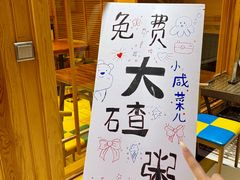 免费
大碴粥
小咸菜儿